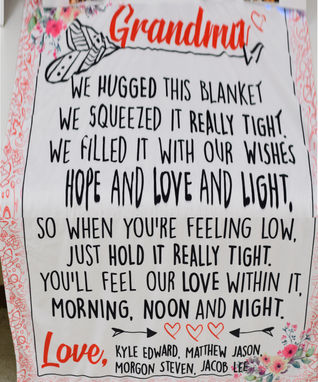 Grandma
WE HUGGED THIS BLANKET
WE SQUEEZED IT REALLY TIGHT.
WE FILLED IT WITH OUR WISHES
HOPE AND LOVE AND LIGHT,
SO WHEN YOU'RE FEELING LOW,
JUST HOLD IT REALLY TIGHT.
YOU'LL FEEL OUR LOVE WITHIN IT,
MORNING, NOON AND NIGHT.
Love, KYLE EDWARD, MATTHEW JASON,
MORGON STEVEN, JACOB LEE